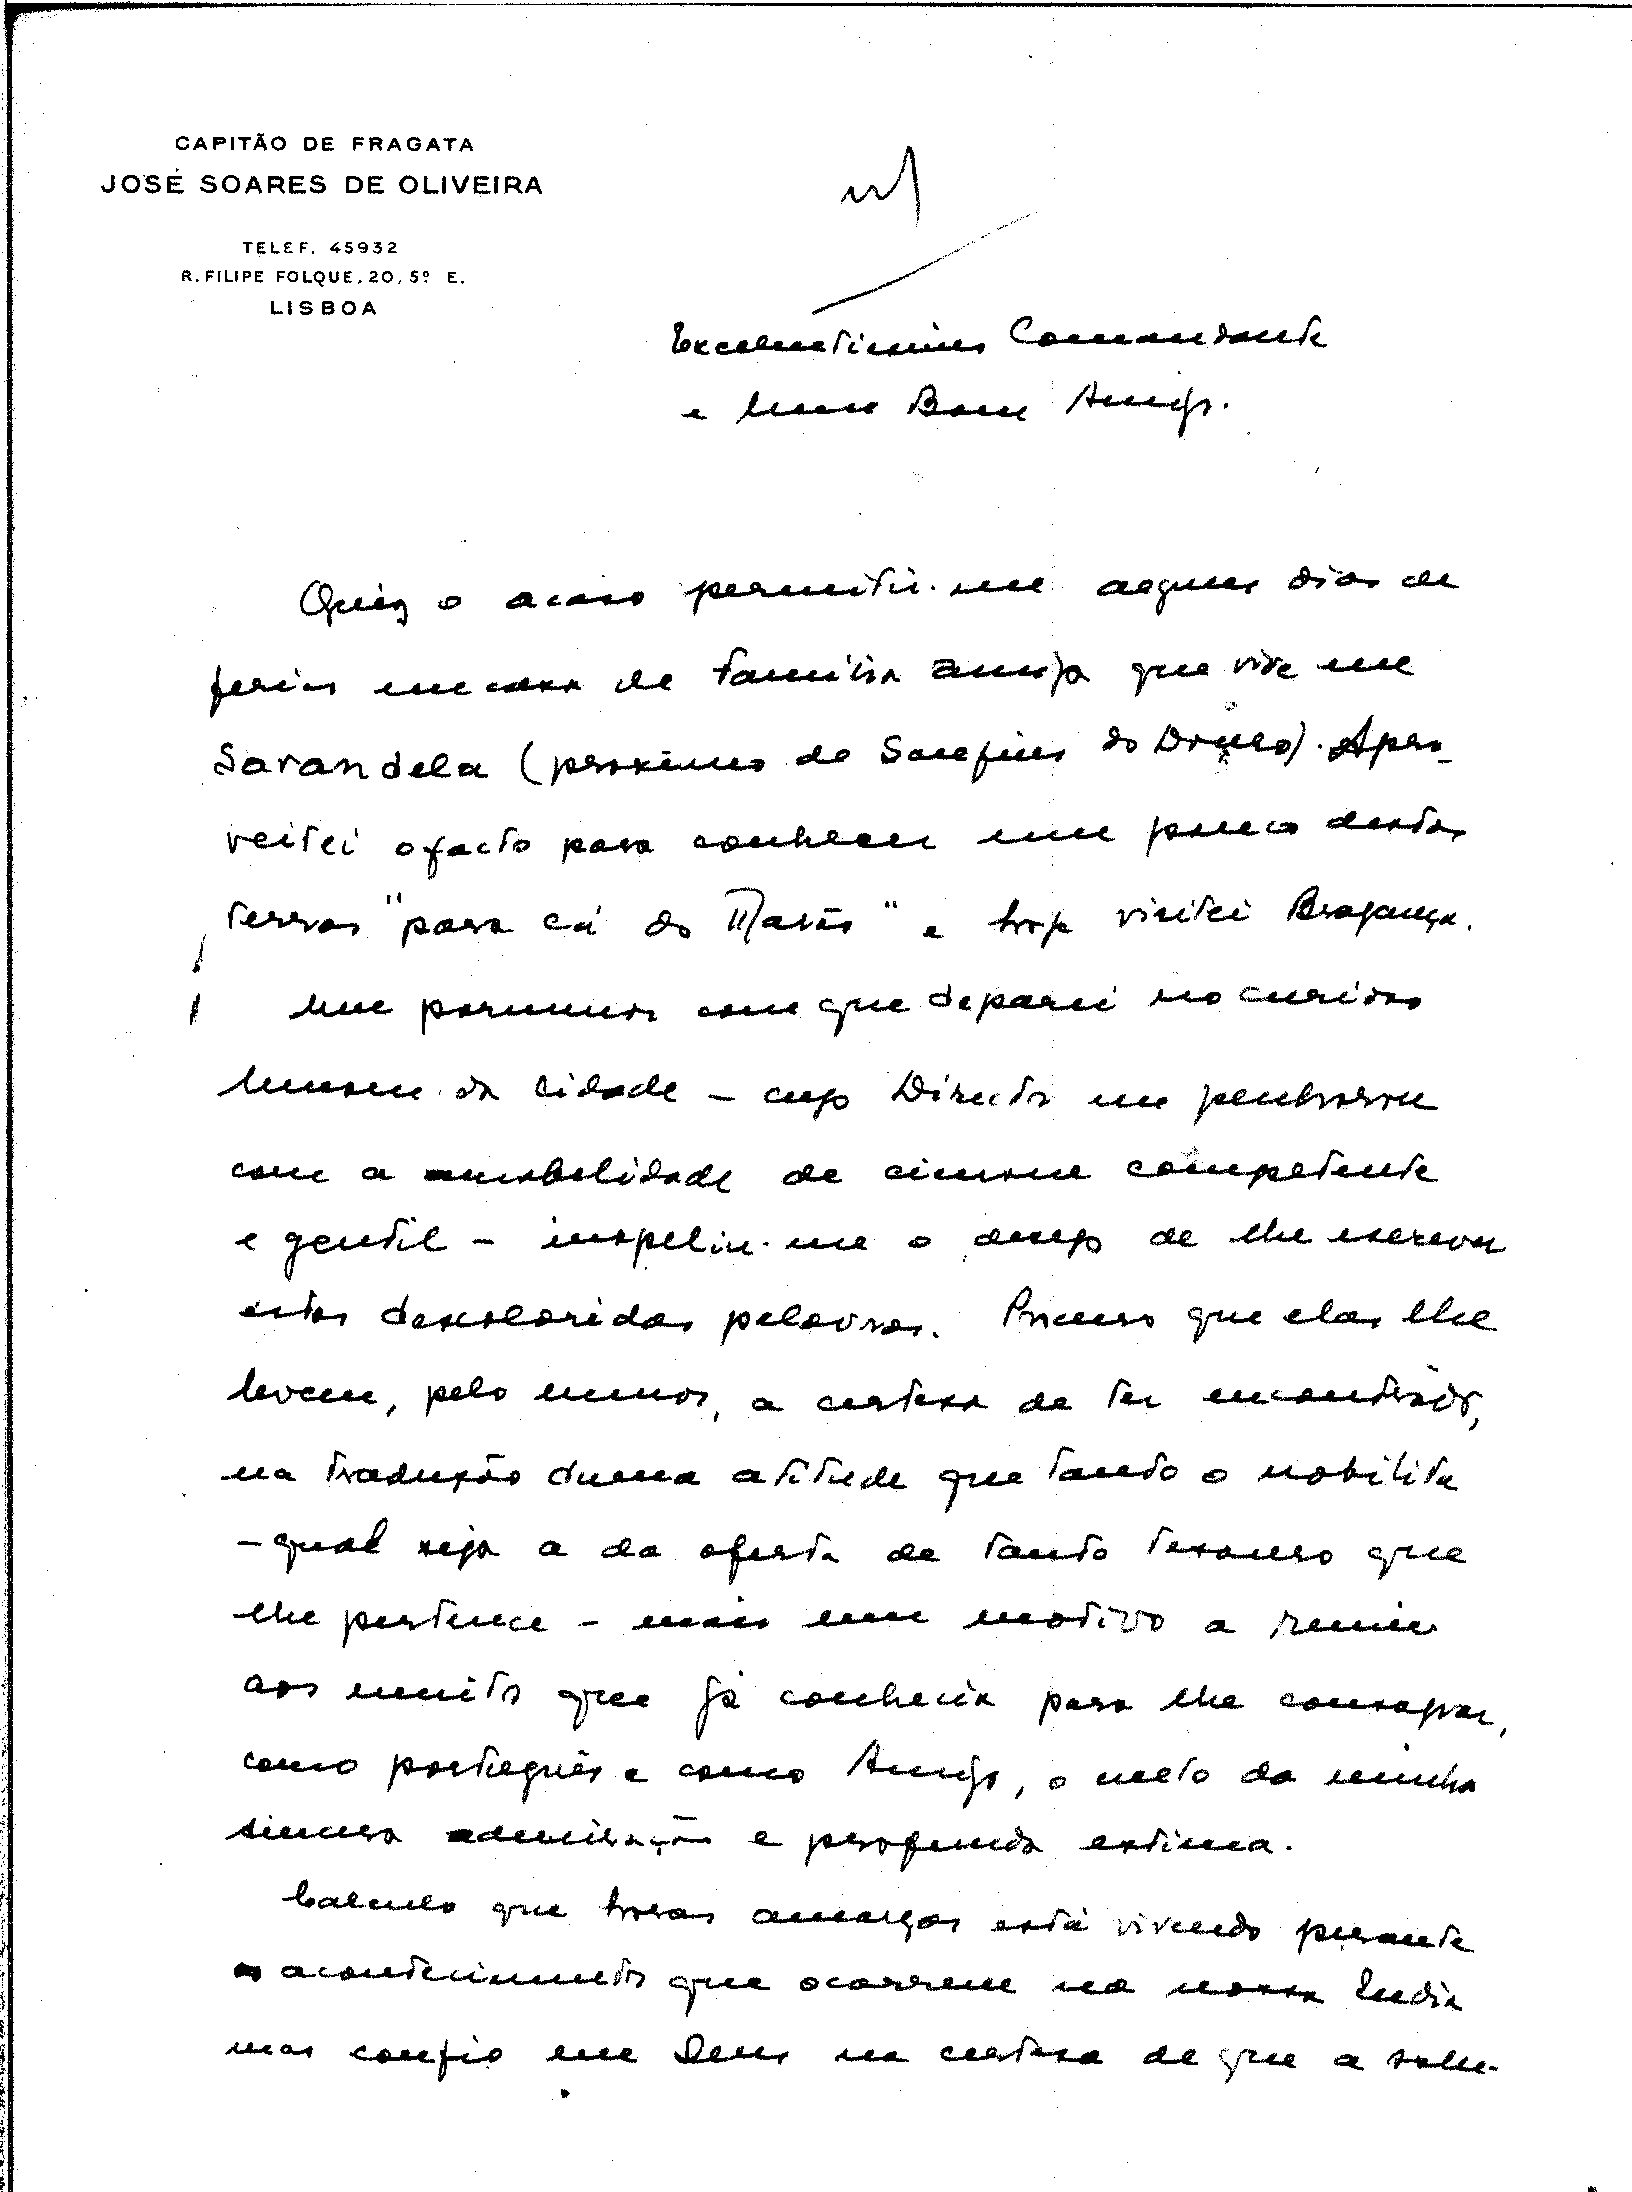 CAPITÃO DE FRAGATA
JOSÉ SOARES DE OLIVEIRA
TELEF. 45932
R. FILIPE FOLQUE, 20, 5º E.
LISBOA
Excelentissimo Comandante
e meu Bom Amigo.
Quiz o acaso permitir-me alguns dias de
ferias em casa de familia amiga que vive em
Sarandela (proximo de Sanfins do Douro). Apro-
veitei o facto para conhecer um pouco destas
terras "para cá do Marão" e hoje visitei Bragança.
Um pormenor com que deparei no curioso
Museu da Cidade – cujo Director me penhorou
com a amabilidade de cicerone competente
e gentil – impeliu-me o desejo de lhe escrever
estas descoloridas palavras. Procuro que elas lhe
levem, pelo menos, a certeza de ter encontrado,
na tradução duma atitude que tanto o nobilita
– qual seja a da oferta de tanto tesouro que
lhe pertence – mais um motivo a reunir
aos muitos que já conhecia para lhe consagrar,
como português e como Amigo, o melo da minha
sincera admiração e profunda estima.
Calculo que horas amargas está vivendo perante
os acontecimentos que ocorrem na nossa India
mas confio em Deus na certeza de que a solu-